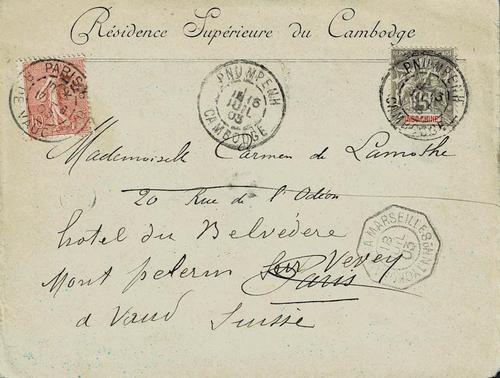 Résidence Supérieure du Cambodge
PARIS
PNUMPENH
CAMBODGE
PNUMPENH
JUIL
03
CAMBODGE
15
INDO-CHINE
Mademoiselle Carmen de Lamothe
20 Rue de l'Odéon
hotel du Belvédere
Mont pelerin sur Vevey
Paris
a Vaud Suisse
A MARSEILLE
18
JUIL
03